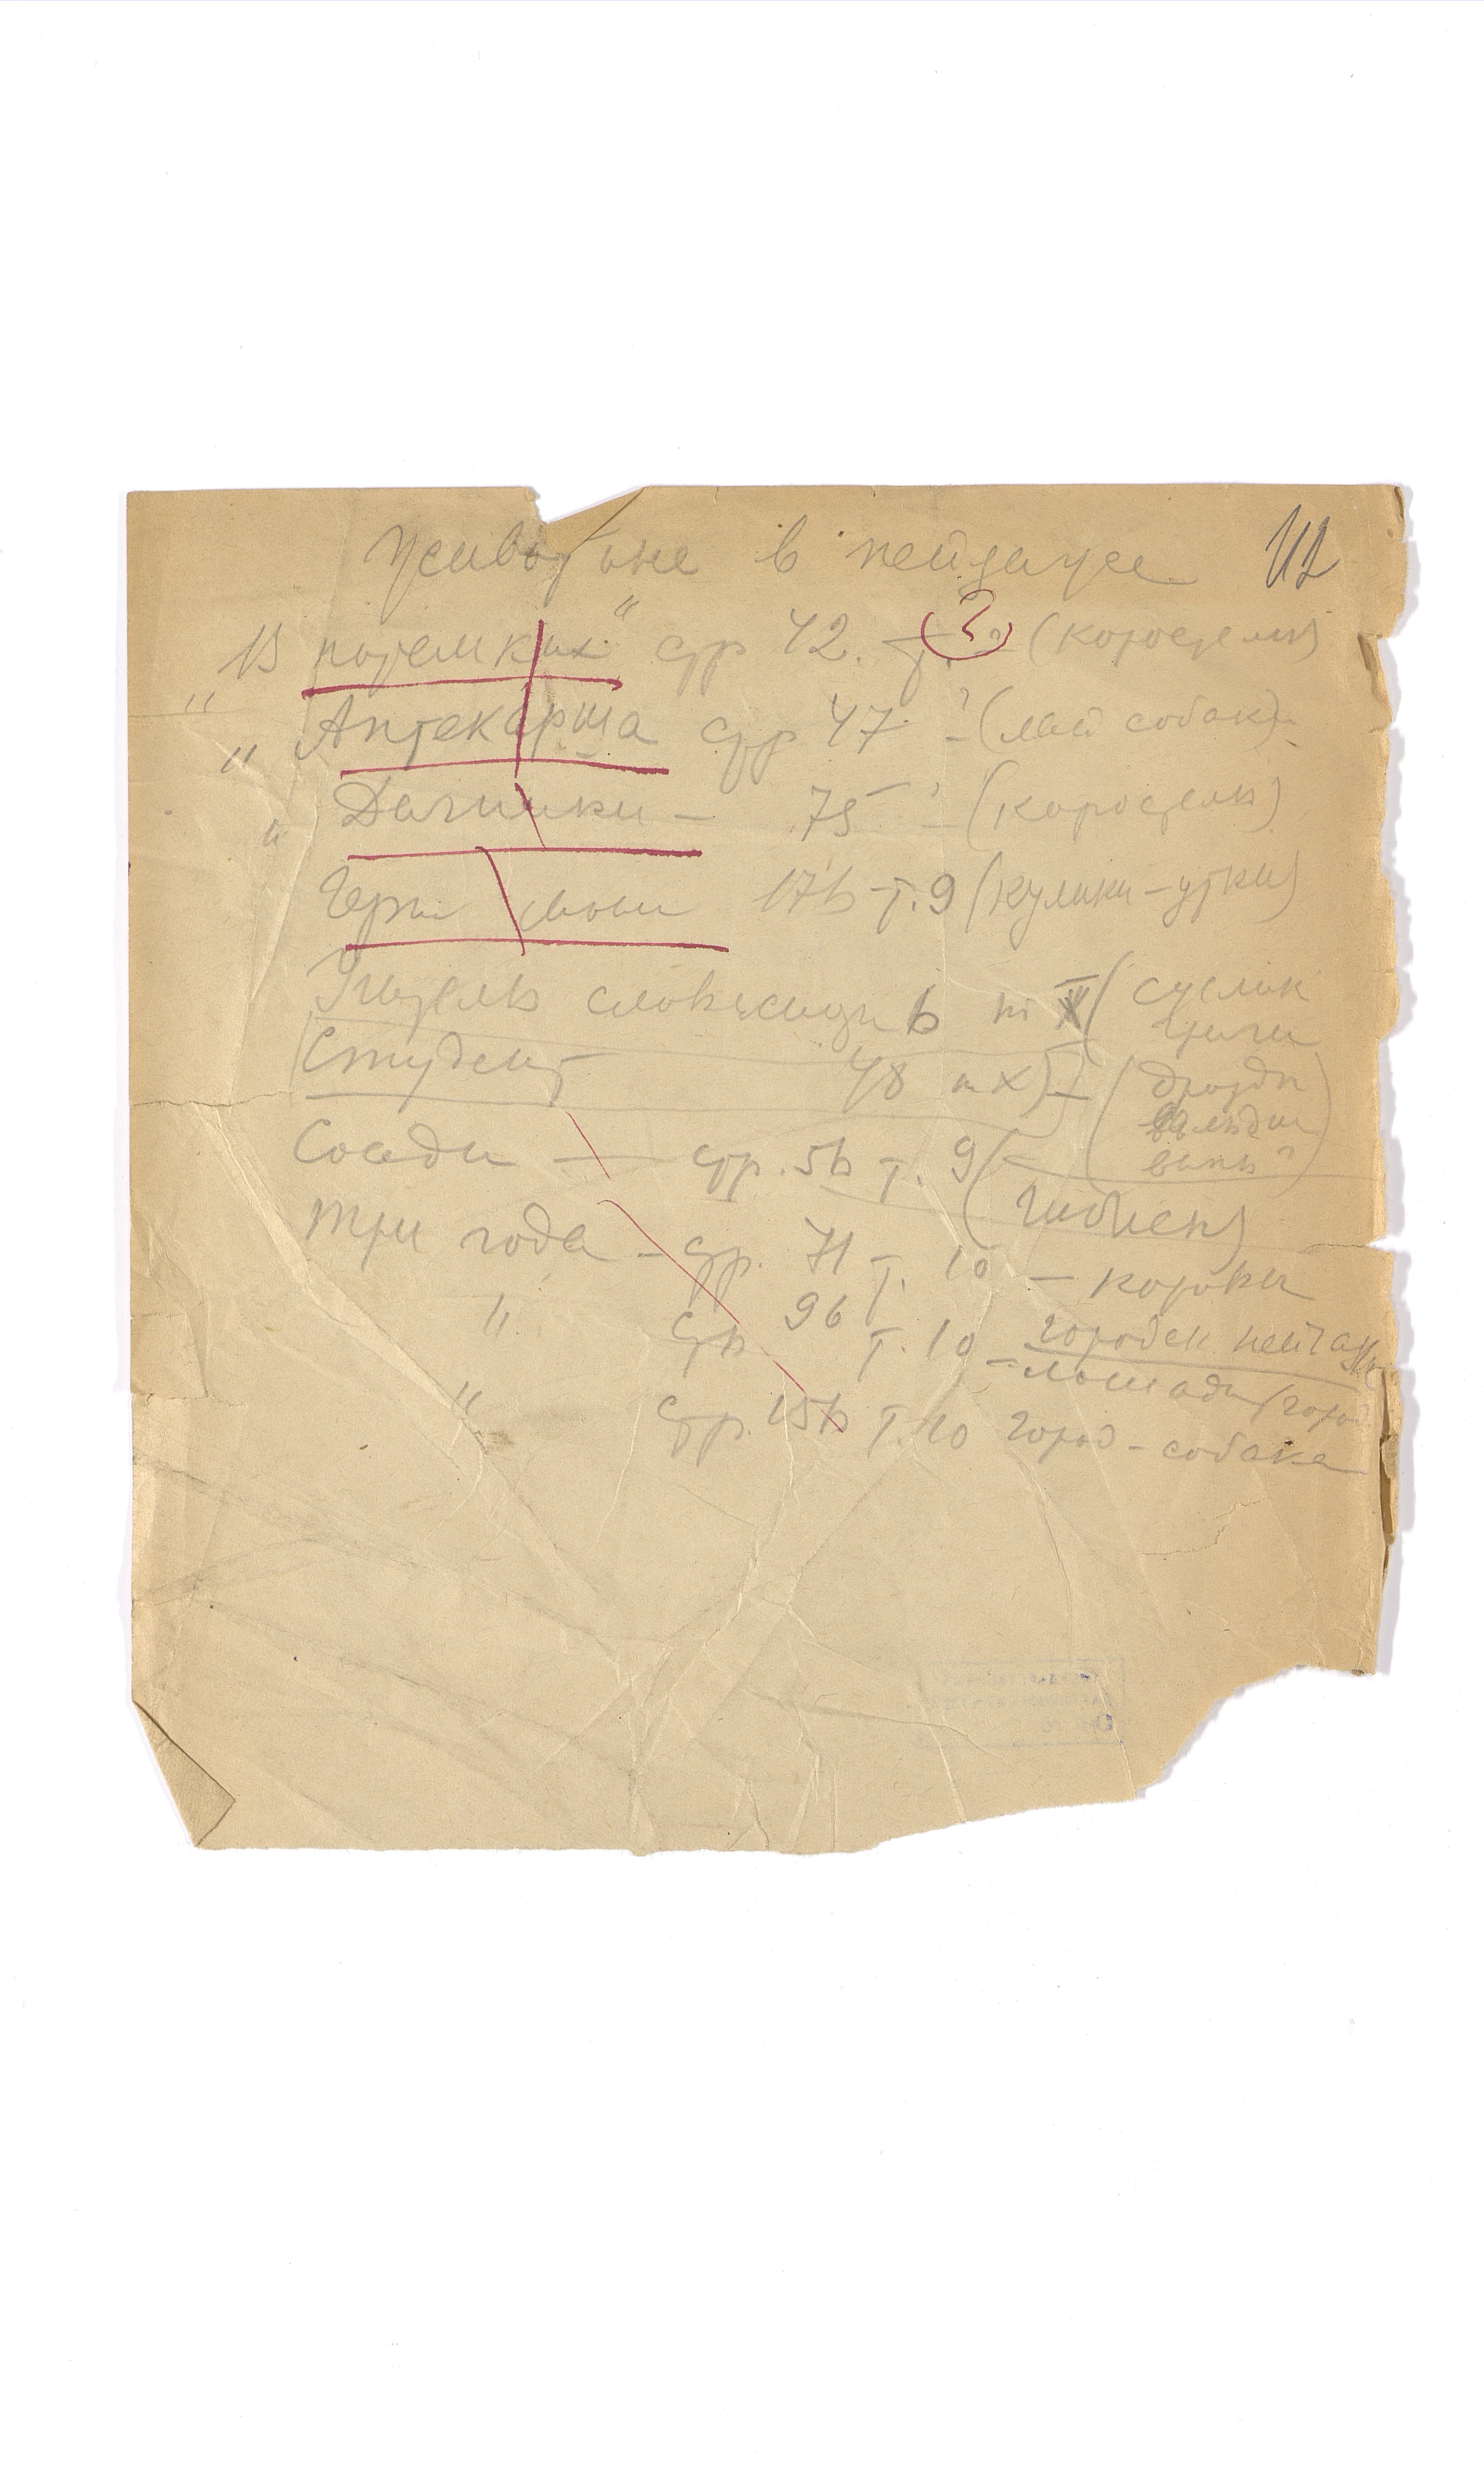 Животные в пейзаже 112
"В потемках" стр 42. т. 2 (коростели)
" Аптекарша стр 47 ? - (лай собак).
" Дачники - 75 ? - (коростели)
" Черн монах 176 т. 9 (кулики - утки)
Учитель словесн 6 т (суслик
Студент 48 т X) - (дрозды
выпь?
Соседи — стр. 56 т. 9 (
(чибисы)
Три года - стр. 71 т. 10 — коровы
" стр 96 т. 10 - городск пейзаж
лошади (город
" стр. 156 т. 10 город - собака